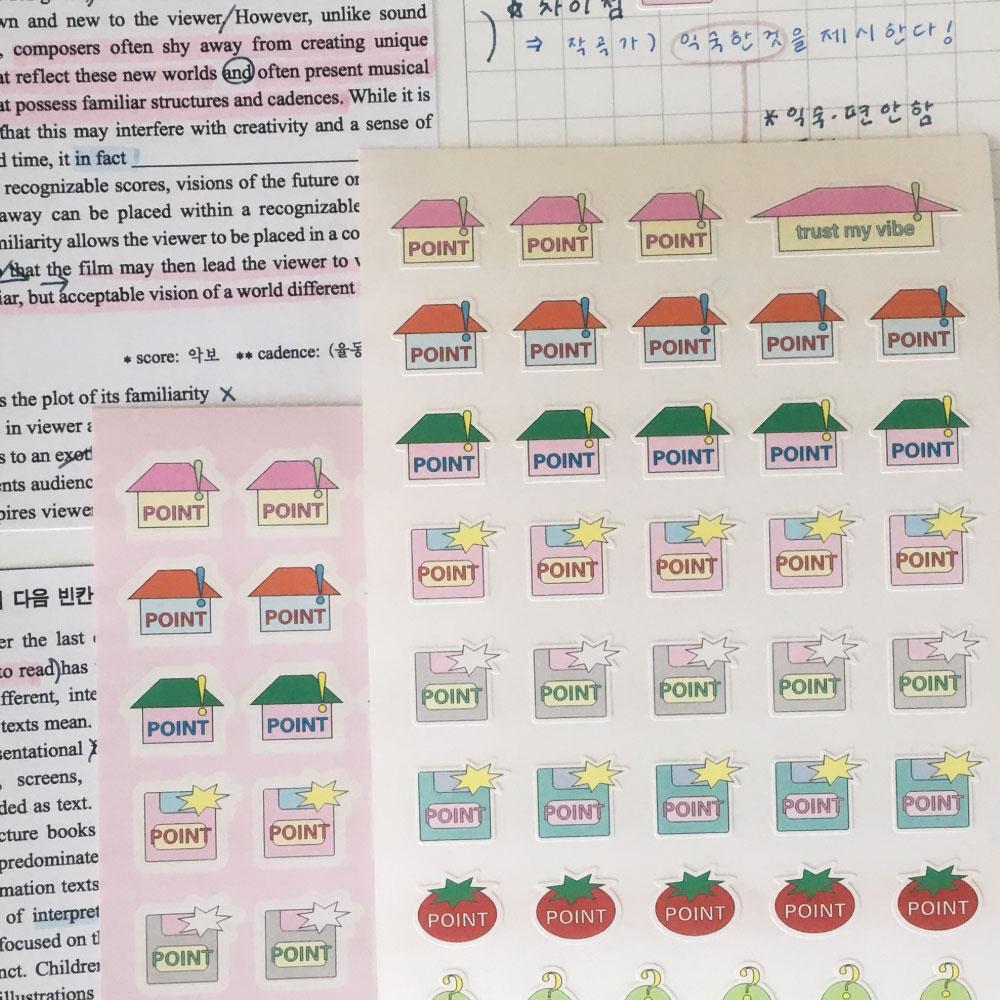 wn and new to the viewer/However, unlike sound
, composers often shy away from creating unique
at reflect these new worlds and often present musical
at possess familiar structures and cadences. While it is
that this may interfere with creativity and a sense of
d time, it in fact
recognizable scores, visions of the future or
away can be placed within a recognizable
niliarity allows the viewer to be placed in a co
that the film may then lead the viewer to
iar, but acceptable vision of a world different
* score: 악보 ** cadence: (율동
s the plot of its familiarity X
in viewer a
s to an exot
nts audienc
pires viewe
다음 빈칸
er the last
to read) has
fferent, inte
texts mean.
sentational
, screens,
ded as text.
cture books
predominate
mation texts
of interpret
focused on tl
nct. Children
illustrations
* 차이점
⇒ 작곡가) 익숙한 것을 제시한다!
* 익숙·편안함
POINT POINT POINT trust my vibe
POINT POINT POINT POINT POINT
POINT POINT POINT POINT POINT
POINT POINT POINT POINT POINT
POINT POINT POINT POINT POINT
POINT POINT POINT POINT POINT
POINT POINT POINT POINT POINT
? ? ? ? ? ?
POINT POINT
POINT POINT
POINT POINT
POINT POINT
POINT POINT